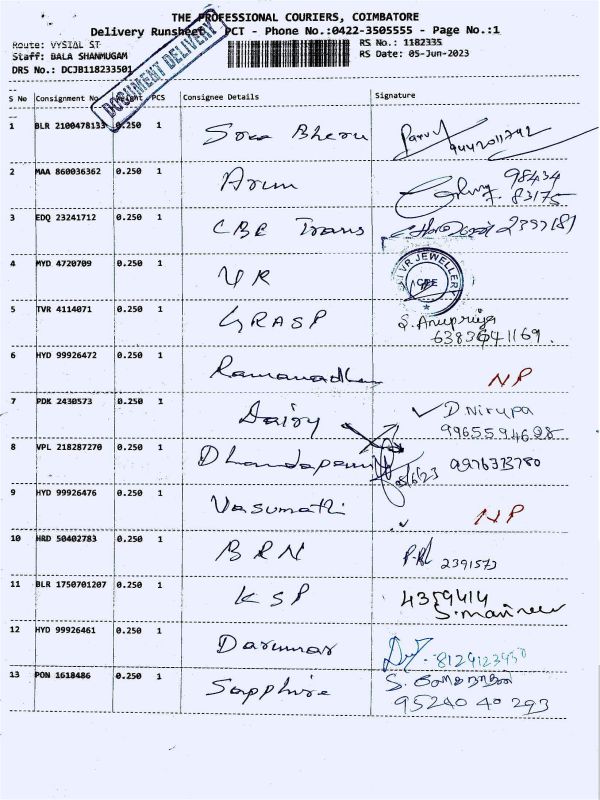 THE PROFESSIONAL COURIERS, COIMBATORE
Delivery Runsheet PCT - Phone No.:0422-3505555 - Page No.:1
Route: VYSIAL ST
RS No.: 1182335
Staff: BALA SHANMUGAM
RS Date: 05-Jun-2023
DRS No.: DCJB118233501
DOCUMENT DELIVERY
S No Consignment No Weight PCS Consignee Details Signature
1 BLR 2100478133 0.250 1 9442011792
2 MAA 860036362 0.250 1 Arun 98434
83175
3 EDQ 23241712 0.250 1 CBE Trans 2397181
4 MYD 4720709 0.250 1 VR VR JEWELLERY CBE
5 TVR 4114071 0.250 1 GRASP S. Anupriya
6 HYD 99926472 0.250 1 Ramanadhan NP
7 PDK 2430573 0.250 1 Dairy D. Nirupa
9965594625
8 VPL 218287270 0.250 1 Dhandapani
9 HYD 99926476 0.250 1 Vasumathi NP
10 HRD 50402783 0.250 1 BRN 2391573
11 BLR 1750701207 0.250 1 KSP 4359414
12 HYD 99926461 0.250 1 8129123450
13 PON 1618486 0.250 1 Sapphire S.
95240 40 293